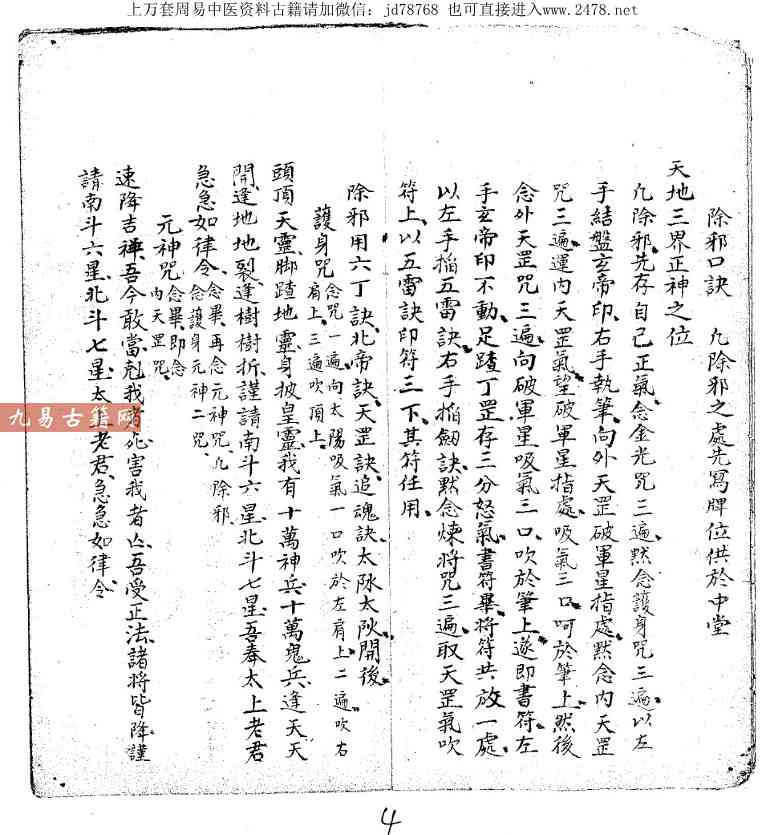 上万套周易中医资料古籍请加微信：jd78768 也可直接进入www.2478.net
除邪口訣 凢除邪之處先寫牌位供於中堂
天地三界正神之位
凢除邪先存自己正氣念金光咒三遍默念護身咒三遍以左
手結盤玄帝印右手執筆向外天罡破軍星指處默念內天罡
咒三遍運內天罡氣望破軍星指處吸氣三口呵於筆上然後
念外天罡咒三遍向破軍星吸氣三口吹於筆上遂即書符左
手玄帝印不動足踏丁罡存三分怒氣書符畢將符共放一處
以左手掐五雷訣右手掐劔訣默念煉將咒三遍取天罡氣吹
符上以五雷訣印符三下其符任用
除邪用六丁訣北帝訣天罡訣追魂訣太陰太陽開後
護身咒 念咒一遍向太陽吸氣一口吹於左肩上二遍吹右
肩上三遍吹頂上
頭頂天靈脚踏地靈身披皇靈我有十萬神兵十萬鬼兵逢天天
開逢地地裂逢樹樹折謹請南斗六星北斗七星吾奉太上老君
急急如律令 念畢再念元神咒凢除邪
念護身元神二咒
元神咒 念畢即念
內天罡咒
速降吉禅吾今敢當尅我者死害我者亾吾受正法諸將皆降謹
請南斗六星北斗七星太老君急急如律令
九易古籍网
4